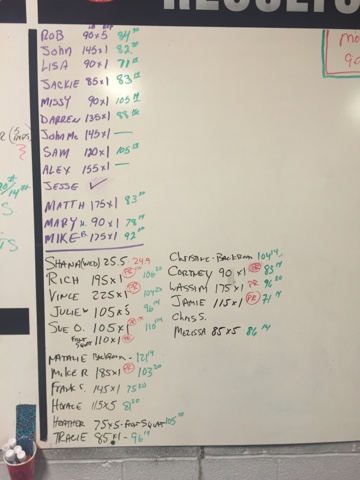 RESULTS
LB REP
ROB 90x5 84
JOHN 145x1 82
LISA 90x1 71
JACKIE 85x1 83
MISSY 90x1 105
DARREN 135x1 88
JOHN Mc 145x1 —
SAM 120x1 105
ALEX 155x1 —
JESSE ✓
MATTH 175x1 83
MARY H. 90x1 78
MIKE B. 175x1 92
SHANA(WED) 25.5 24.9
RICH 195x1 PR 106
VINCE 225x1 PR 104
JULIE 105x5 96
SUE O. 105x1 PR 110
FRONT SQUAT 110x1 PR
NATALIE BACKROOM - 121
MIKE R 185x1 PR 103
FRANK S. 145x1 75
HORACE 115x5 81
HEATHER 75x5 - FRONT SQUAT 105
TRACIE 85x1 - 96
CHRISTINE - BACKROOM 104
CORTNEY 90x1 PR 83
WASSIM 175x1 PR 96
JAMIE 115x1 PR 71
CHAS S.
MELISSA 85x5 86